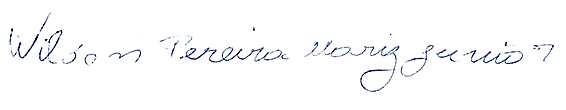 Wilson Pereira Mariz Junior